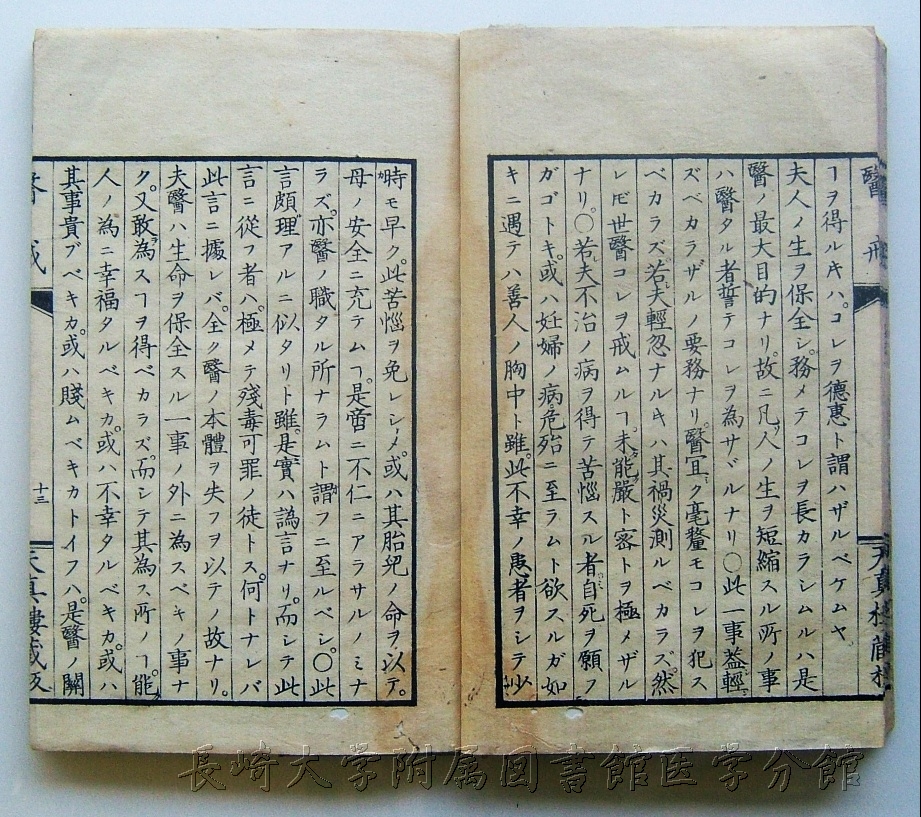 醫戒
ヿヲ得ルキハ。コレヲ德惠ト謂ハザルベケムヤ
夫人ノ生ヲ保全シ。務メテコレヲ長カラシムルハ是
醫ノ最大目的ナリ。故ニ凡人ノ生ヲ短縮スル所ノ事
ハ醫タル者誓テコレヲ為サヾルナリ〇此一事葢輕
ズベカラザルノ要務ナリ。醫冝ク毫釐モコレヲ犯ス
ベカラズ。若夫輕忽ナルキハ其禍災測ルベカラズ。然
レ𪜈世醫コレヲ戒ムルヿ。未能嚴ト密トヲ極メザル
ナリ。〇若夫不治ノ病ヲ得テ苦惱スル者自死ヲ願フ
ガゴトキ。或ハ妊婦ノ病危殆ニ至ラムト欲スルガ如
キニ遇テハ善人ノ胸中ト雖。此不幸ノ患者ヲシテ片
時モ早ク。此苦惱ヲ免レシメ。或ハ其胎兒ノ命ヲ以テ。
母ノ安全ニ充テムヿ。是啻ニ不仁ニアラサルノミナ
ラズ。亦醫ノ職タル所ナラムト謂フニ至ルベシ。〇此
言頗理アルニ似タリト雖。是實ハ譌言ナリ。而シテ此
言ニ從フ者ハ。極メテ殘毒可罪ノ徒トス。何トナレバ
此言ニ據レバ。全ク醫ノ本體ヲ失フヲ以テノ故ナリ。
夫醫ハ生命ヲ保全スル一事ノ外ニ為スベキノ事ナ
ク。又敢為スヿヲ得ベカラズ。而シテ其為ス所ノヿ。能
人ノ為ニ幸福タルベキカ。或ハ不幸タルベキカ。或ハ
其事貴ブベキカ。或ハ賤ムベキカトイフハ。是醫ノ關
十三
天真樓藏板
長崎大学附属図書館医学分館